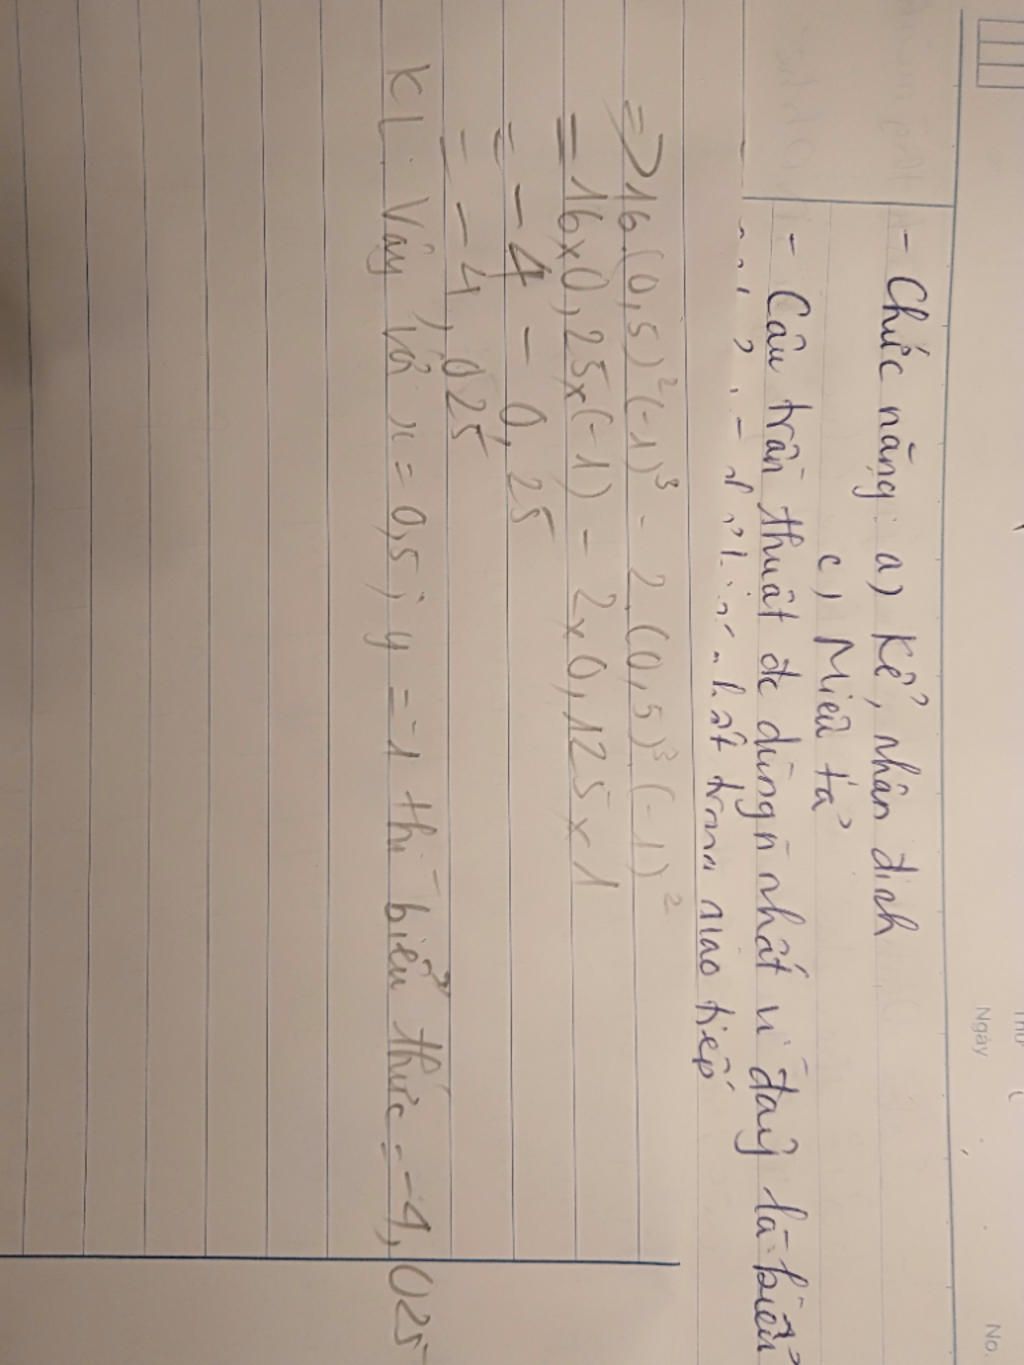 Thứ
Ngày
No.
- Chức năng: a) Kể, nhân định
c) Miêu tả
- Câu trần thuật đc dùng n` nhất vì đây là kiểu
nhất trong giao tiếp
=> 16.(0,5)²(-1)³ - 2.(0,5)³(-1)²
= 16x0,25x(-1) - 2x0,125x1
= -4 - 0,25
= -4,025
KL: Vậy, với x = 0,5; y = -1 thì biểu thức = -4,025